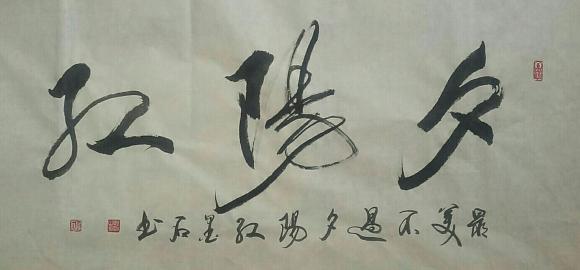 夕陽紅
最美不過夕陽紅墨石书